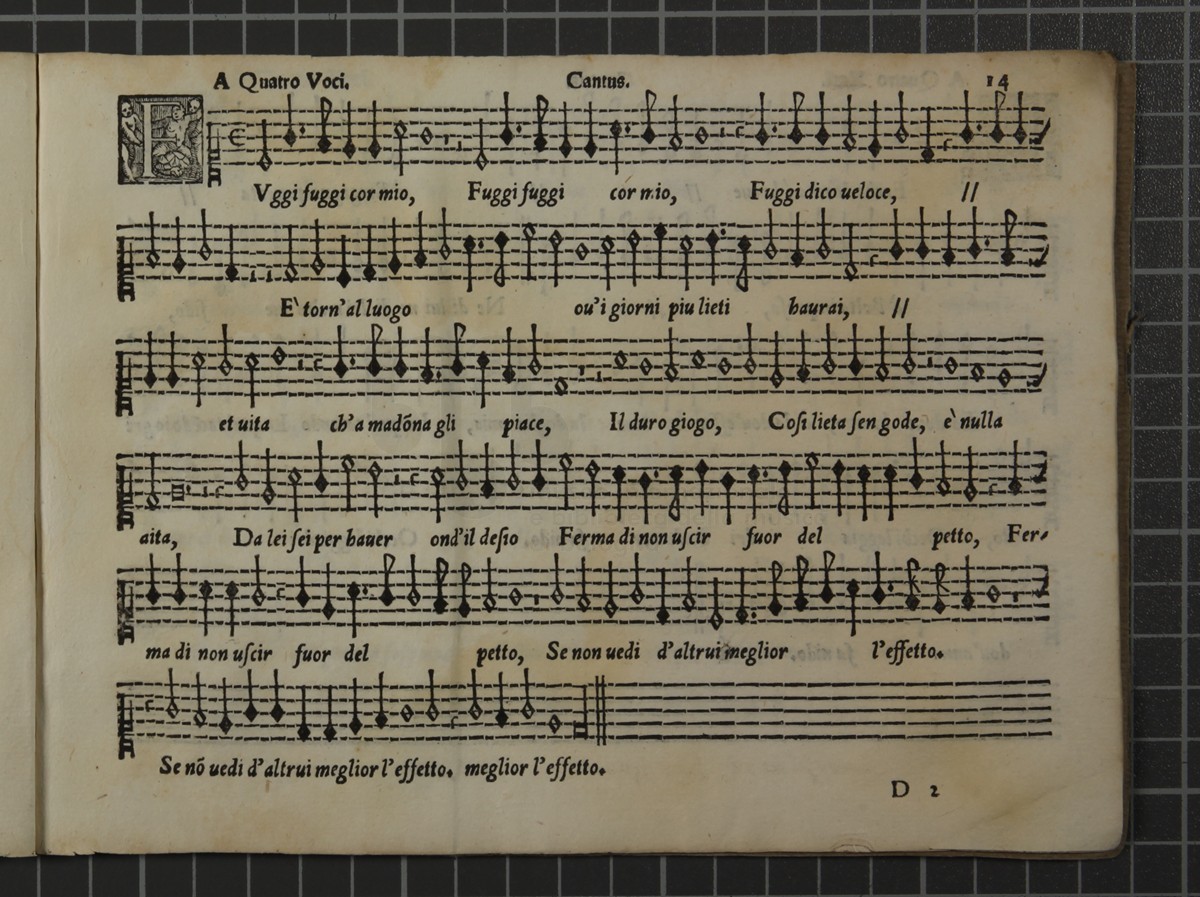 A Quatro Voci. Cantus. 14
FVggi fuggi cor mio, Fuggi fuggi cor mio, Fuggi dico ueloce, //
E' torn'al luogo ou'i giorni piu lieti haurai, //
et uita ch'a madõna gli piace, Il duro giogo, Cosi lieta sen gode, è nulla
aita, Da lei sei per hauer ond'il desio Ferma di non uscir fuor del petto, Fer-
ma di non uscir fuor del petto, Se non uedi d'altrui meglior l'effetto.
Se nõ uedi d'altrui meglior l'effetto. meglior l'effetto.
D 2